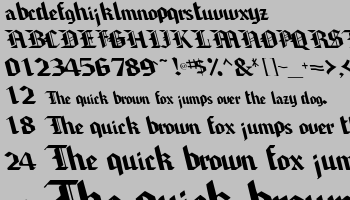 abcdefghijklmnopqrstuvwxyz
ABCDEFGHIJKLMNOPQRST
0123456789~`!@#$%^&*|\~_+=>,<
12 The quick brown fox jumps over the lazy dog.
18 The quick brown fox jumps over the
24 The quick brown fox jum
The quick brown